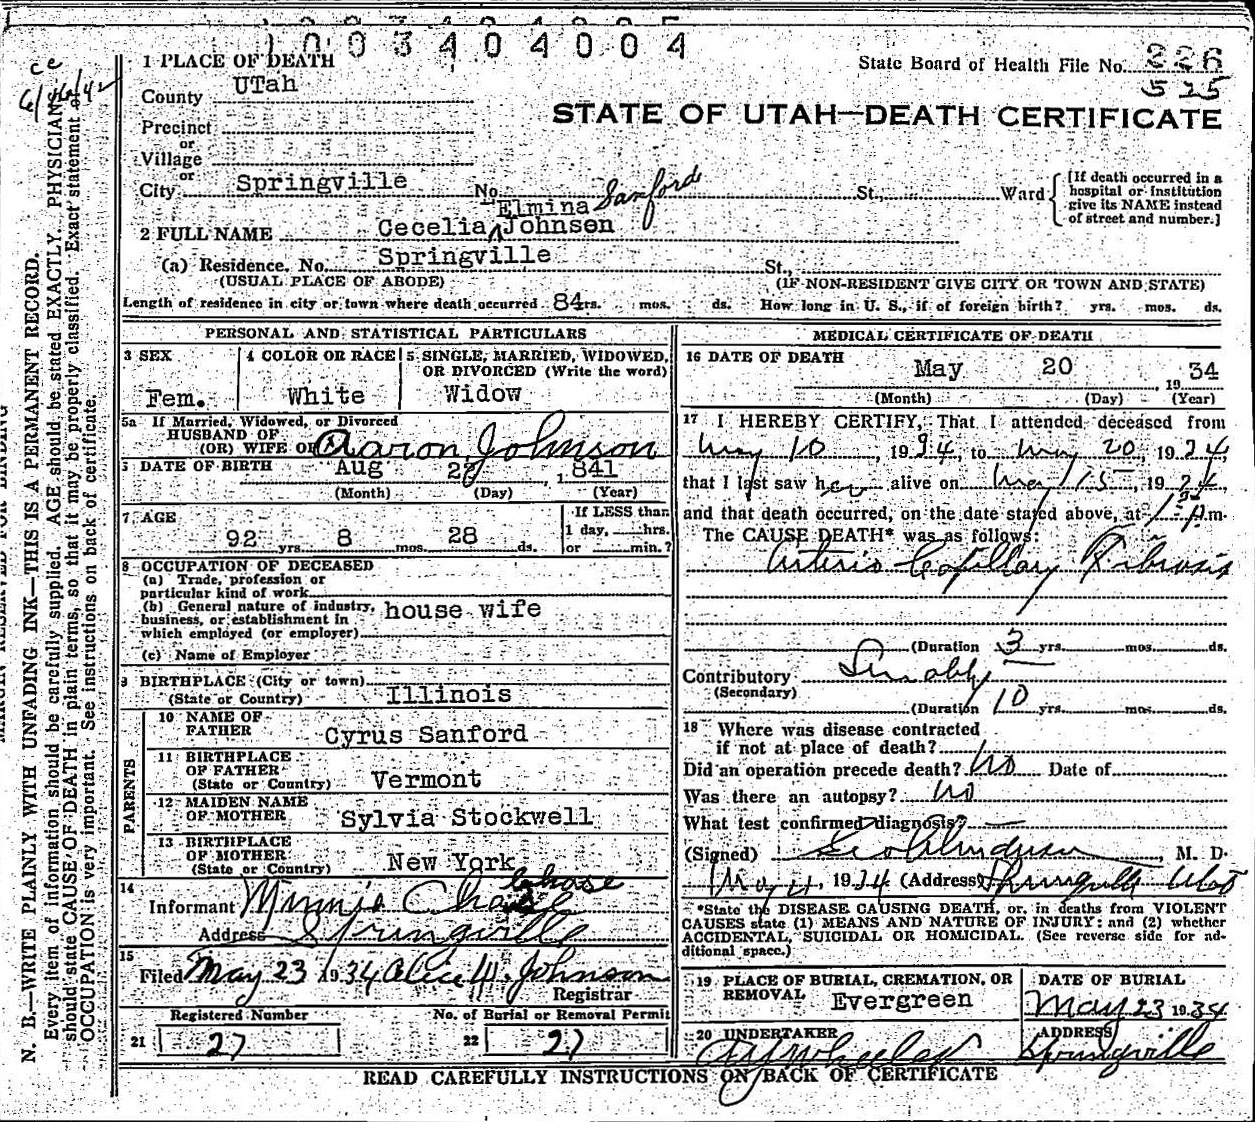 1003404004
1 PLACE OF DEATH
State Board of Health File No. 226
525
County UTah
STATE OF UTAH—DEATH CERTIFICATE
Precinct
or
Village
or
City Springville No. St., Ward
[If death occurred in a hospital or institution give its NAME instead of street and number.]
Elmina Sanford
2 FULL NAME Cecelia Johnson
(a) Residence. No. Springville St.,
(USUAL PLACE OF ABODE) (IF NON-RESIDENT GIVE CITY OR TOWN AND STATE)
Length of residence in city or town where death occurred 84 yrs. mos. ds. How long in U. S., if of foreign birth? yrs. mos. ds.
PERSONAL AND STATISTICAL PARTICULARS
3 SEX 4 COLOR OR RACE 5 SINGLE, MARRIED, WIDOWED,
OR DIVORCED (Write the word)
Fem. White Widow
5a If Married, Widowed, or Divorced
HUSBAND OF
(OR) WIFE OF Aaron Johnson
DATE OF BIRTH Aug 1841
(Month) (Day) (Year)
7 AGE If LESS than
1 day, hrs.
92 yrs. 8 mos. 28 ds. or min.?
8 OCCUPATION OF DECEASED
(a) Trade, profession or
particular kind of work
(b) General nature of industry,
business, or establishment in
which employed (or employer) house wife
(c) Name of Employer
9 BIRTHPLACE (City or town)
(State or Country) Illinois
PARENTS
10 NAME OF
FATHER Cyrus Sanford
11 BIRTHPLACE
OF FATHER
(State or Country) Vermont
12 MAIDEN NAME
OF MOTHER Sylvia Stockwell
13 BIRTHPLACE
OF MOTHER
(State or Country) New York
14
Informant Minnie Chase
Address Springville
15
Filed May 23 1934 Alice H. Johnson
Registrar
Registered Number No. of Burial or Removal Permit
21 27 22 27
MEDICAL CERTIFICATE OF DEATH
16 DATE OF DEATH May 20 1934
(Month) (Day) (Year)
17 I HEREBY CERTIFY, That I attended deceased from
May 10, 1934, to May 20, 1934,
that I last saw her alive on May 15, 1934,
and that death occurred, on the date stated above, at m.
The CAUSE DEATH* was as follows:
Arterio Capillary Fibrosis
(Duration 3 yrs. mos. ds.
Contributory Senility
(Secondary)
(Duration 10 yrs. mos. ds.
18 Where was disease contracted
if not at place of death?
Did an operation precede death? No Date of
Was there an autopsy? No
What test confirmed diagnosis? —
(Signed) M. D.
May 21, 1934 (Address) Springville Utah
*State the DISEASE CAUSING DEATH, or, in deaths from VIOLENT
CAUSES state (1) MEANS AND NATURE OF INJURY; and (2) whether
ACCIDENTAL, SUICIDAL OR HOMICIDAL. (See reverse side for ad-
ditional space.)
19 PLACE OF BURIAL, CREMATION, OR
REMOVAL Evergreen
DATE OF BURIAL
May 23 1934
20 UNDERTAKER
A Y Wheeler
ADDRESS
Springville
READ CAREFULLY INSTRUCTIONS ON BACK OF CERTIFICATE
N. B.—WRITE PLAINLY WITH UNFADING INK—THIS IS A PERMANENT RECORD.
Every item of information should be carefully supplied. AGE should be stated EXACTLY. PHYSICIANS
should state CAUSE OF DEATH in plain terms, so that it may be properly classified. Exact statement of
OCCUPATION is very important. See instructions on back of certificate.